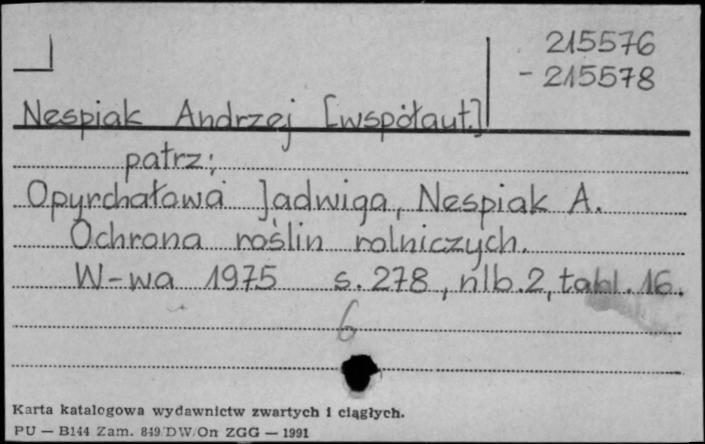 215576
- 215578
Nespiak Andrzej [współaut.]
patrz:
Opyrchałowa Jadwiga, Nespiak A.
Ochrona roślin rolniczych.
W-wa 1975 s. 278, nlb. 2, tabl. 16.
6
Karta katalogowa wydawnictw zwartych i ciągłych.
PU — B144 Zam. 849/DW/On ZGG — 1991